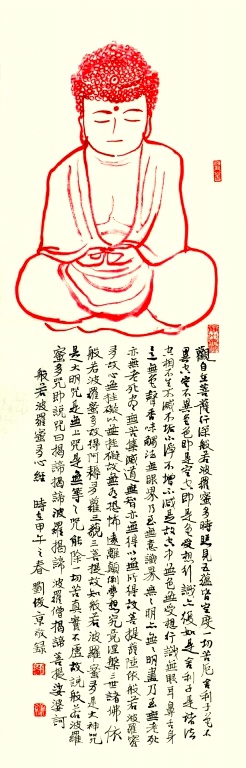 觀自在菩薩行深般若波羅蜜多時照見五蘊皆空度一切苦厄舍利子色不
異空空不異色色即是空空即是色受想行識亦復如是舍利子是諸法
空相不生不滅不垢不淨不增不減是故空中無色無受想行識無眼耳鼻舌身
意無色聲香味觸法無眼界乃至無意識界無無明亦無無明盡乃至無老死
亦無老死盡無苦集滅道無智亦無得以無所得故菩提薩埵依般若波羅蜜
多故心無罣礙無罣礙故無有恐怖遠離顛倒夢想究竟涅槃三世諸佛依
般若波羅蜜多故得阿耨多羅三藐三菩提故知般若波羅蜜多是大神咒
是大明咒是無上咒是無等等咒能除一切苦真實不虛故說般若波羅
蜜多咒即說咒曰揭諦揭諦波羅揭諦波羅僧揭諦菩提娑婆訶
般若波羅蜜多心經 時在甲午之春 劉俊京敬錄